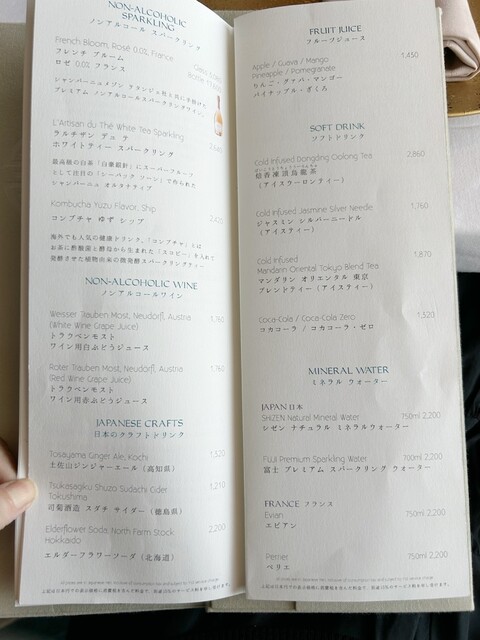 NON-ALCOHOLIC
SPARKLING
ノンアルコール スパークリング
French Bloom, Rosé 0.0%, France
フレンチ ブルーム
ロゼ 0.0% フランス
L'Artisan du Thé White Tea Sparkling
ラルチザン デュ テ
ホワイトティー スパークリング
Kombucha Yuzu Flavor, Ship 2,420
コンブチャ ゆず シップ
海外でも人気の健康ドリンク、「コンブチャ」とは
お茶に酢酸菌と酵母から生まれた「スコビー」を入れて
発酵させた植物由来の微発酵スパークリングティー
NON-ALCOHOLIC WINE
ノンアルコールワイン
Weisser Trauben Most, Neudorfl, Austria 1,760
(White Wine Grape Juice)
トララベンモスト
ワイン用白ぶどうジュース
Roter Trauben Most, Neudorfl, Austria 1,760
(Red Wine Grape Juice)
トララベンモスト
ワイン用赤ぶどうジュース
JAPANESE CRAFTS
日本のクラフトドリンク
Tosayama Ginger Ale, Kochi 1,320
土佐山ジンジャーエール（高知県）
Tsukasagiku Shuzo Sudachi Cider 1,210
Tokushima
司菊酒造 スダチ サイダー（徳島県）
Elderflower Soda, North Farm Stock 2,200
Hokkaido
エルダーフラワーソーダ（北海道）
FRUIT JUICE
フルーツジュース
Apple / Guava / Mango 1,430
Pineapple / Pomegranate
りんご・グァバ・マンゴー
パイナップル・ざくろ
SOFT DRINK
ソフトドリンク
Cold Infused Dongding Oolong Tea 2,860
凍頂烏龍茶
（アイスウーロンティー）
Cold Infused Jasmine Silver Needle 1,760
ジャスミン シルバーニードル
（アイスティー）
Cold Infused 1,870
Mandarin Oriental Tokyo Blend Tea
マンダリン オリエンタル 東京
ブレンドティー（アイスティー）
Coca-Cola / Coca-Cola Zero 1,320
コカコーラ / コカコーラ・ゼロ
MINERAL WATER
ミネラル ウォーター
JAPAN 日本
SHIZEN Natural Mineral Water 750ml 2,200
シゼン ナチュラル ミネラルウォーター
FUJI Premium Sparkling Water 700ml 2,200
富士 プレミアム スパークリング ウォーター
FRANCE フランス
Evian 750ml 2,200
エビアン
Perrier 750ml 2,200
ペリエ